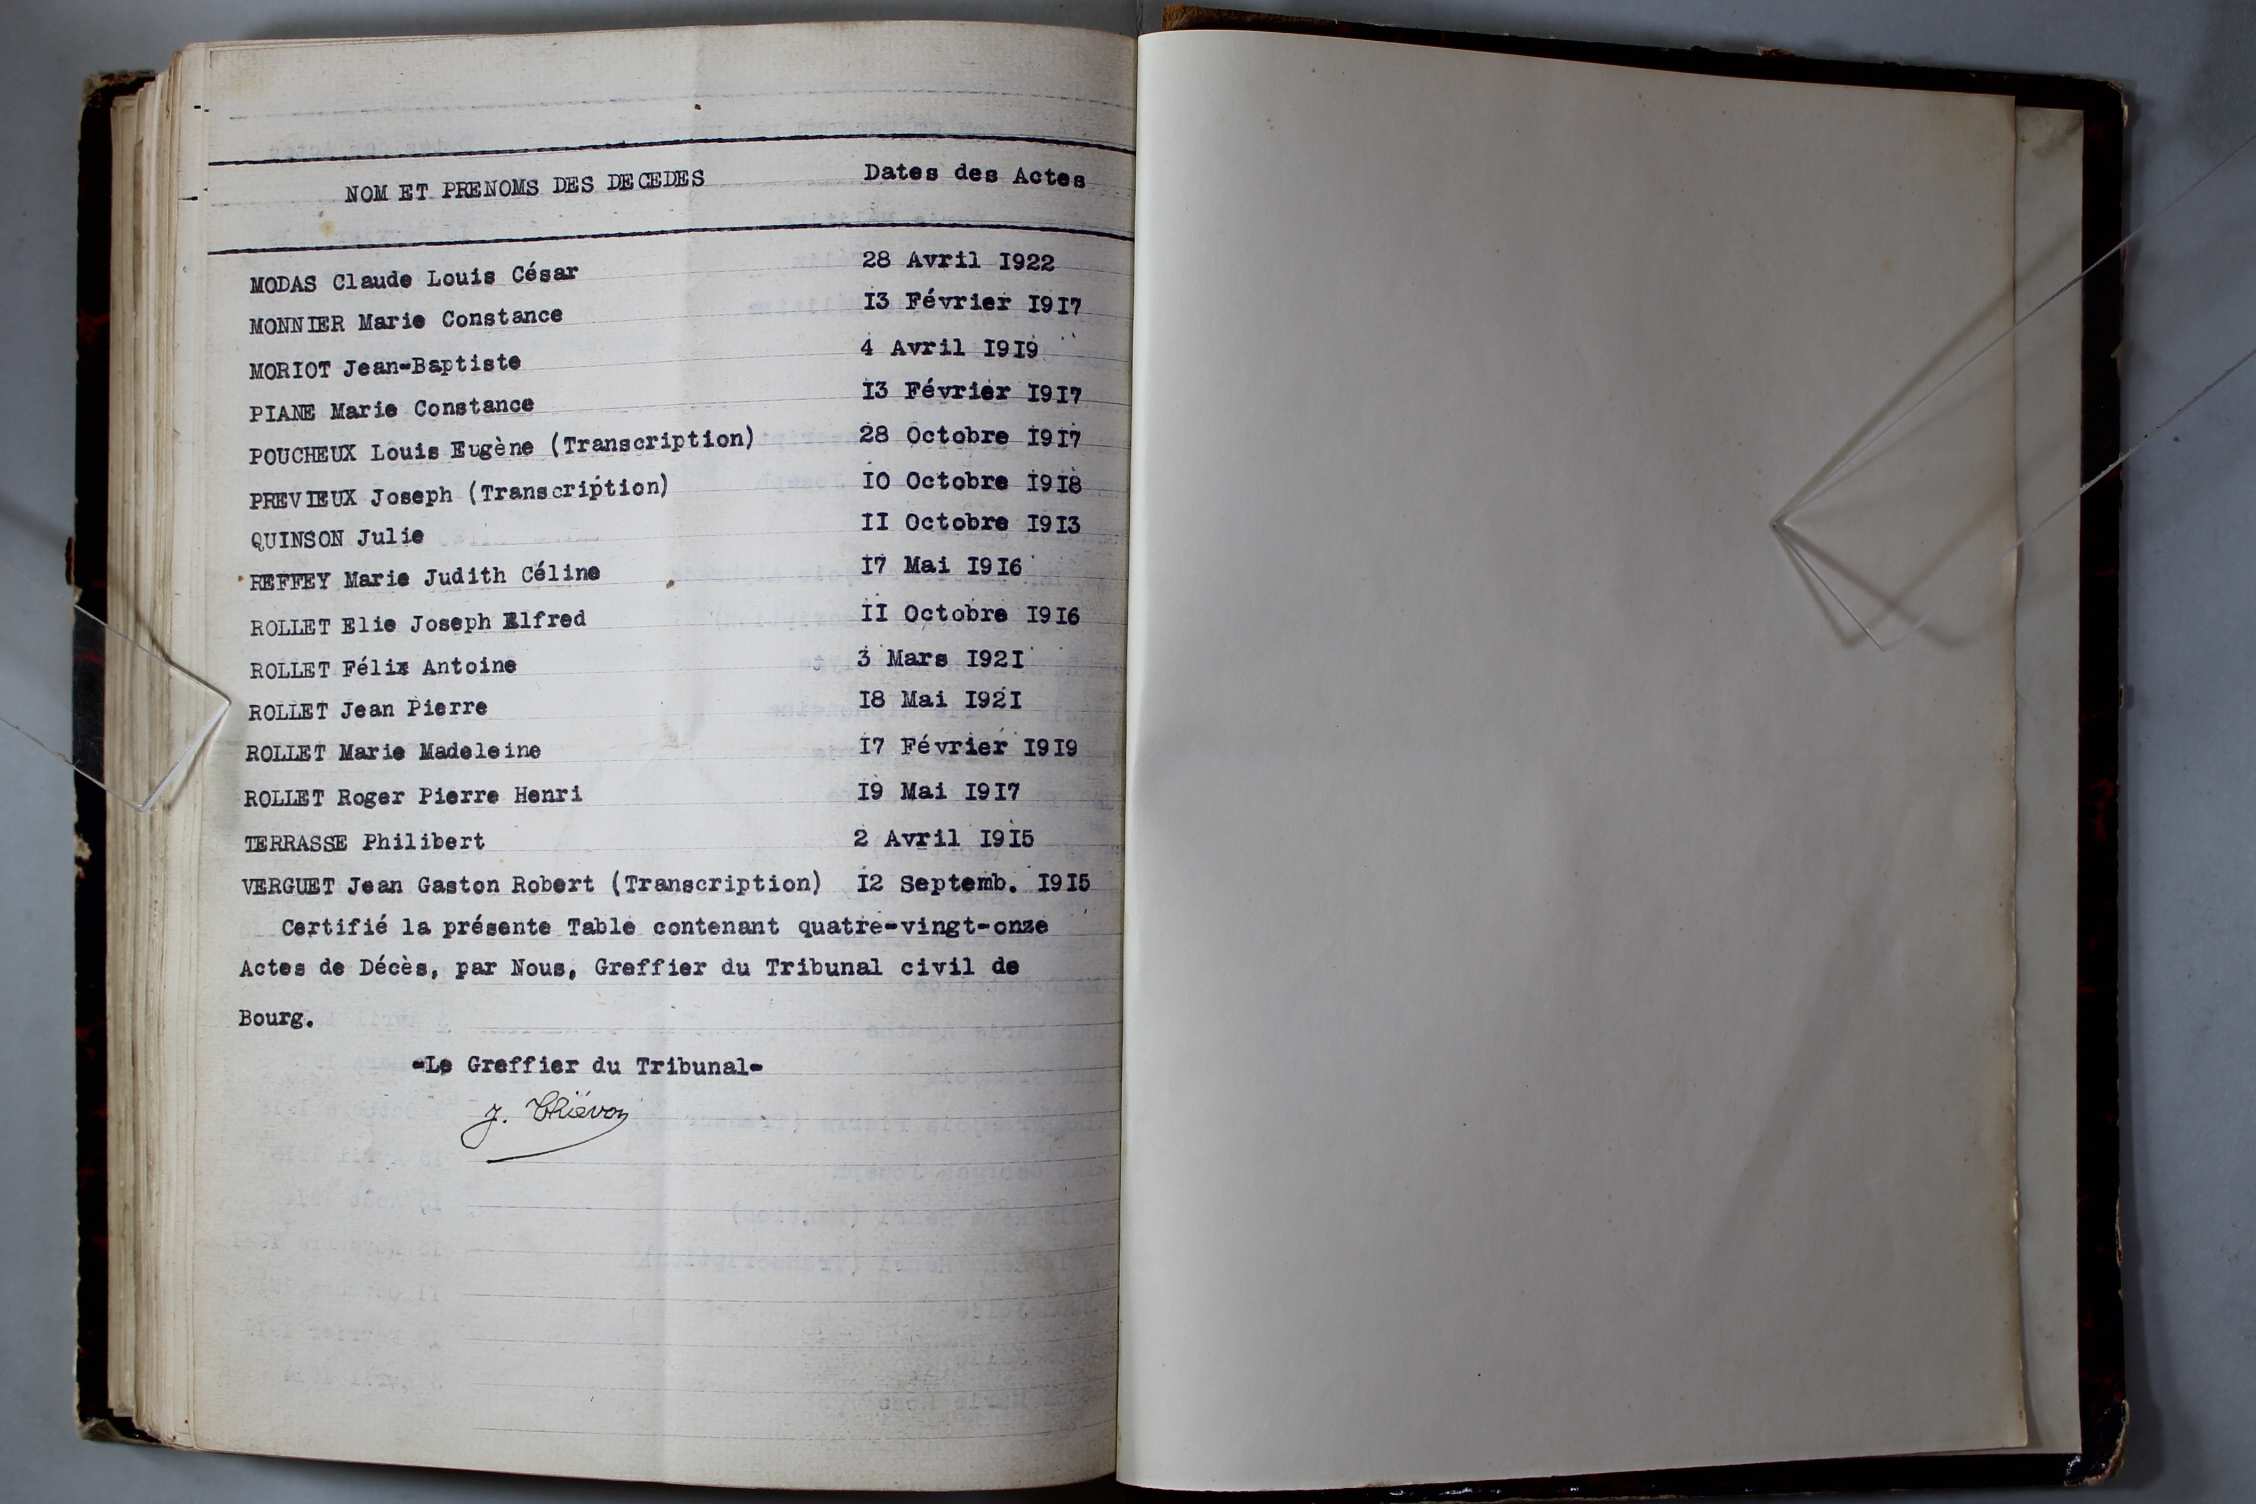 NOM ET PRENOMS DES DECEDES Dates des Actes
MODAS Claude Louis César 28 Avril I922
MONNIER Marie Constance I3 Février I9I7
MORIOT Jean-Baptiste 4 Avril I9I9
PIANE Marie Constance I3 Février I9I7
POUCHEUX Louis Eugène (Transcription) 28 Octobre I9I7
PREVIEUX Joseph (Transcription) I0 Octobre I9I8
QUINSON Julie II Octobre I9I3
REFFEY Marie Judith Céline I7 Mai I9I6
ROLLET Elie Joseph Elfred II Octobre I9I6
ROLLET Félix Antoine 3 Mars I92I
ROLLET Jean Pierre I8 Mai I92I
ROLLET Marie Madeleine I7 Février I9I9
ROLLET Roger Pierre Henri I9 Mai I9I7
TERRASSE Philibert 2 Avril I9I5
VERGUET Jean Gaston Robert (Transcription) I2 Septemb. I9I5
Certifié la présente Table contenant quatre-vingt-onze
Actes de Décès, par Nous, Greffier du Tribunal civil de
Bourg.
-Le Greffier du Tribunal-
J. Thiévon